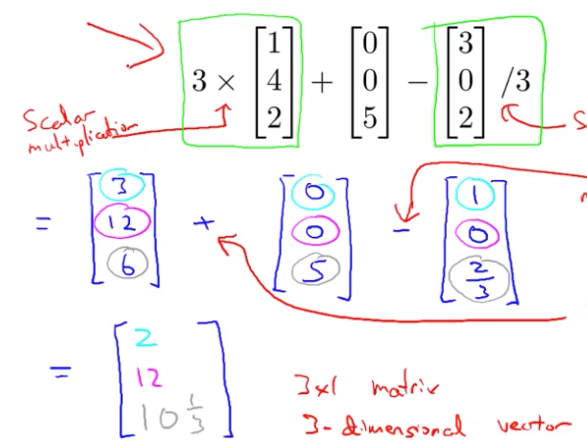 3 × [1 4 2] + [0 0 5] − [3 0 2] /3
Scalar
multiplication
= [3 12 6] + [0 0 5] - [1 0 2/3]
= [2 12 10 1/3]
3x1 matrix
3-dimensional vector